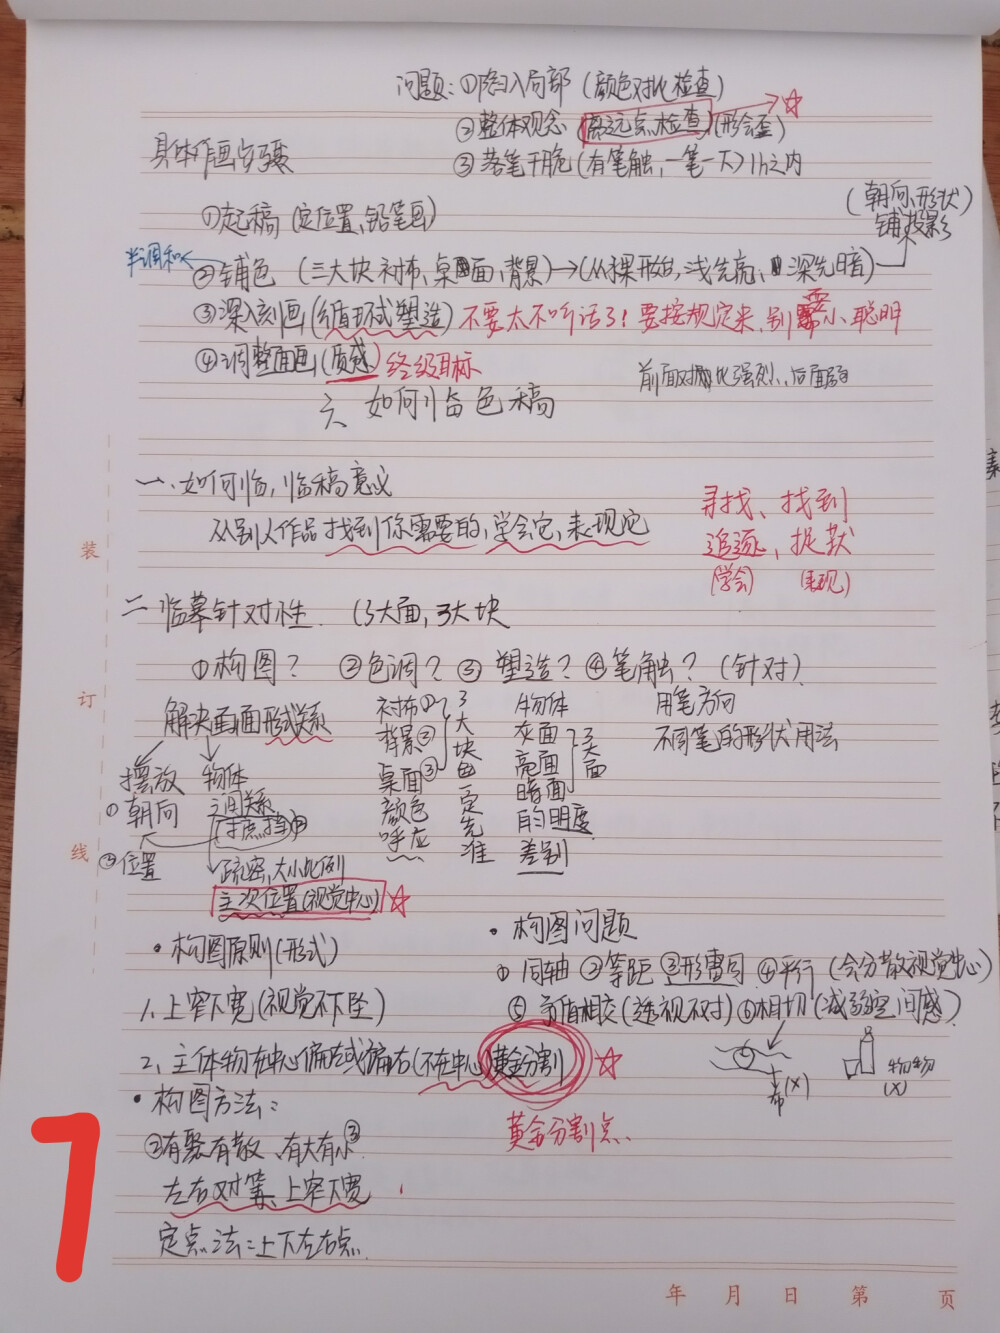 问题:①陷入局部(颜色对比检查)
②整体观念(离远点检查)(形会歪)☆
③落笔干脆(有笔触,一笔一下)1h之内
具体作画步骤
(朝向、形状)
铺投影
①起稿(定位置、铅笔画)
半调和
②铺色(三大块 衬布、桌面、背景)→(从裸形的,浅先亮、深先暗)
③深入刻画(循环式塑造)不要太不听话了!要按规定来,别耍小聪明
④调整画面(质感)终级目标
前面对比强烈、后面弱
六、如何临色稿
一、如何临,临稿意义
从别人作品找到你需要的,学会它,表现它
寻找、找到
追逐,捉获
(学会) (表现)
二 临摹针对性. (3大面,3大块
①构图? ②色调? ③塑造? ④笔触?(针对)
解决画面形式关系
摆放
①朝向
②位置
物体
之间关系
疏密,大小比例
主次位置(视觉中心)☆
衬布①
背景②
桌面③
颜色
呼应
3大块色一定先准
物体
灰面
亮面
暗面
3大面
的明度
差别
用笔方向
不同笔的形状用法
·构图原则(形式)
1、上窄下宽(视觉不下坠)
2、主体物在中心偏左或偏右(不在中心)黄金分割☆
黄金分割点、
·构图问题
①同轴 ②等距 ③形雷同 ④平行(会分散视觉中心)
⑤ 相交(透视不对)⑥相切(减弱空间感)
布(X)
物物
(X)
·构图方法:
②有聚有散、有大有小③
左右对等、上窄下宽
定点法:上下左右点.
装
订
线
1
年 月 日 第 页